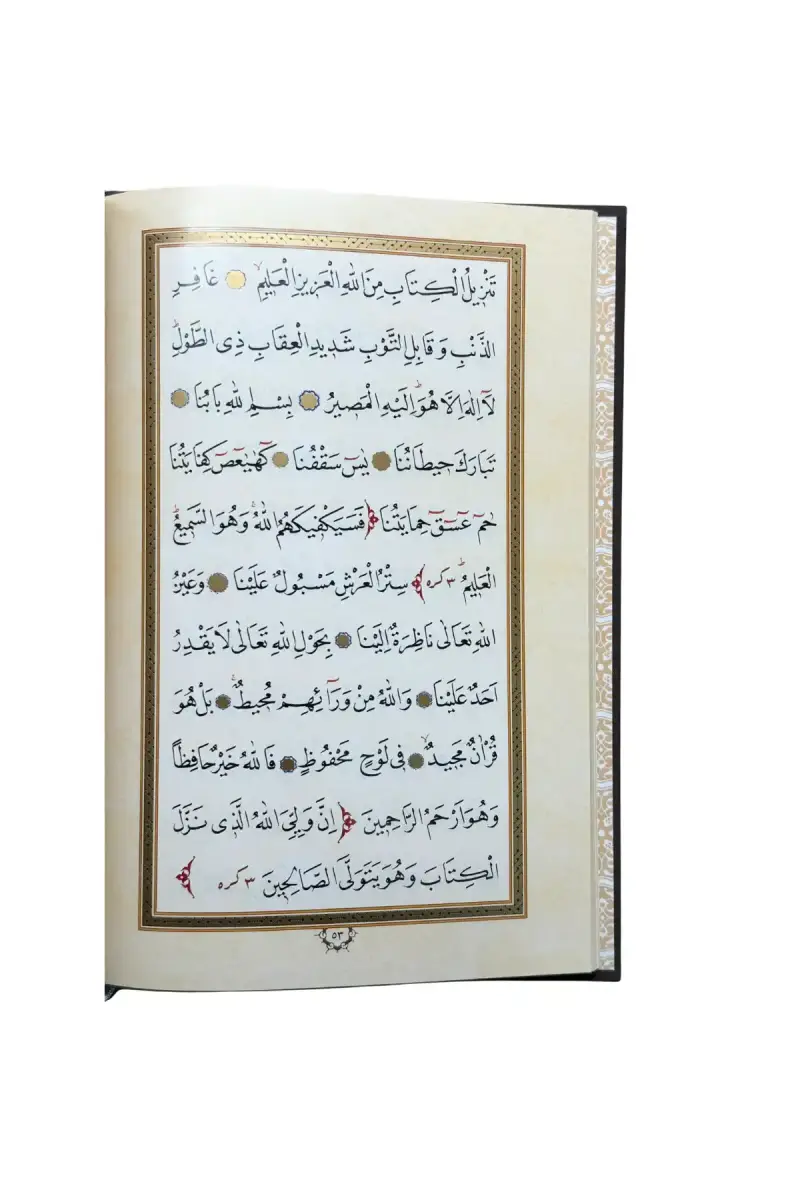 تَنْزِيلُ الْكِتَابِ مِنَ اللهِ الْعَزِيزِ الْعَلِيمِ ۞ غَافِرِ
الذَّنْبِ وَقَابِلِ التَّوْبِ شَدِيدِ الْعِقَابِ ذِى الطَّوْلِ
لَآ اِلٰهَ اِلَّا هُوَ اِلَيْهِ الْمَصِيرُ ۞ بِسْمِ اللهِ بَابُنَا ۞
تَبَارَكَ حِيطَانُنَا ۞ يٰسٓ سَقْفُنَا ۞ كٓهٰيٰعٓصٓ كِفَايَتُنَا
حٰمٓ عٓسٓقٓ حِمَايَتُنَا ﴿ فَسَيَكْفِيكَهُمُ اللهُ وَهُوَ السَّمِيعُ
الْعَلِيمُ ٣ كره ﴾ سِتْرُ الْعَرْشِ مَسْبُولٌ عَلَيْنَا ۞ وَعَيْنُ
اللهِ تَعَالٰى نَاظِرَةٌ اِلَيْنَا ۞ بِحَوْلِ اللهِ تَعَالٰى لَا يَقْدِرُ
اَحَدٌ عَلَيْنَا ۞ وَاللهُ مِنْ وَرَآئِهِمْ مُحِيطٌ ۞ بَلْ هُوَ
قُرْاٰنٌ مَجِيدٌ ۞ فِى لَوْحٍ مَحْفُوظٍ ۞ فَاللهُ خَيْرٌ حَافِظًا
وَهُوَ اَرْحَمُ الرَّاحِمِينَ ﴿ اِنَّ وَلِيِّىَ اللهُ الَّذِى نَزَّلَ
الْكِتَابَ وَهُوَ يَتَوَلَّى الصَّالِحِينَ ٣ كره ﴾
٥٣